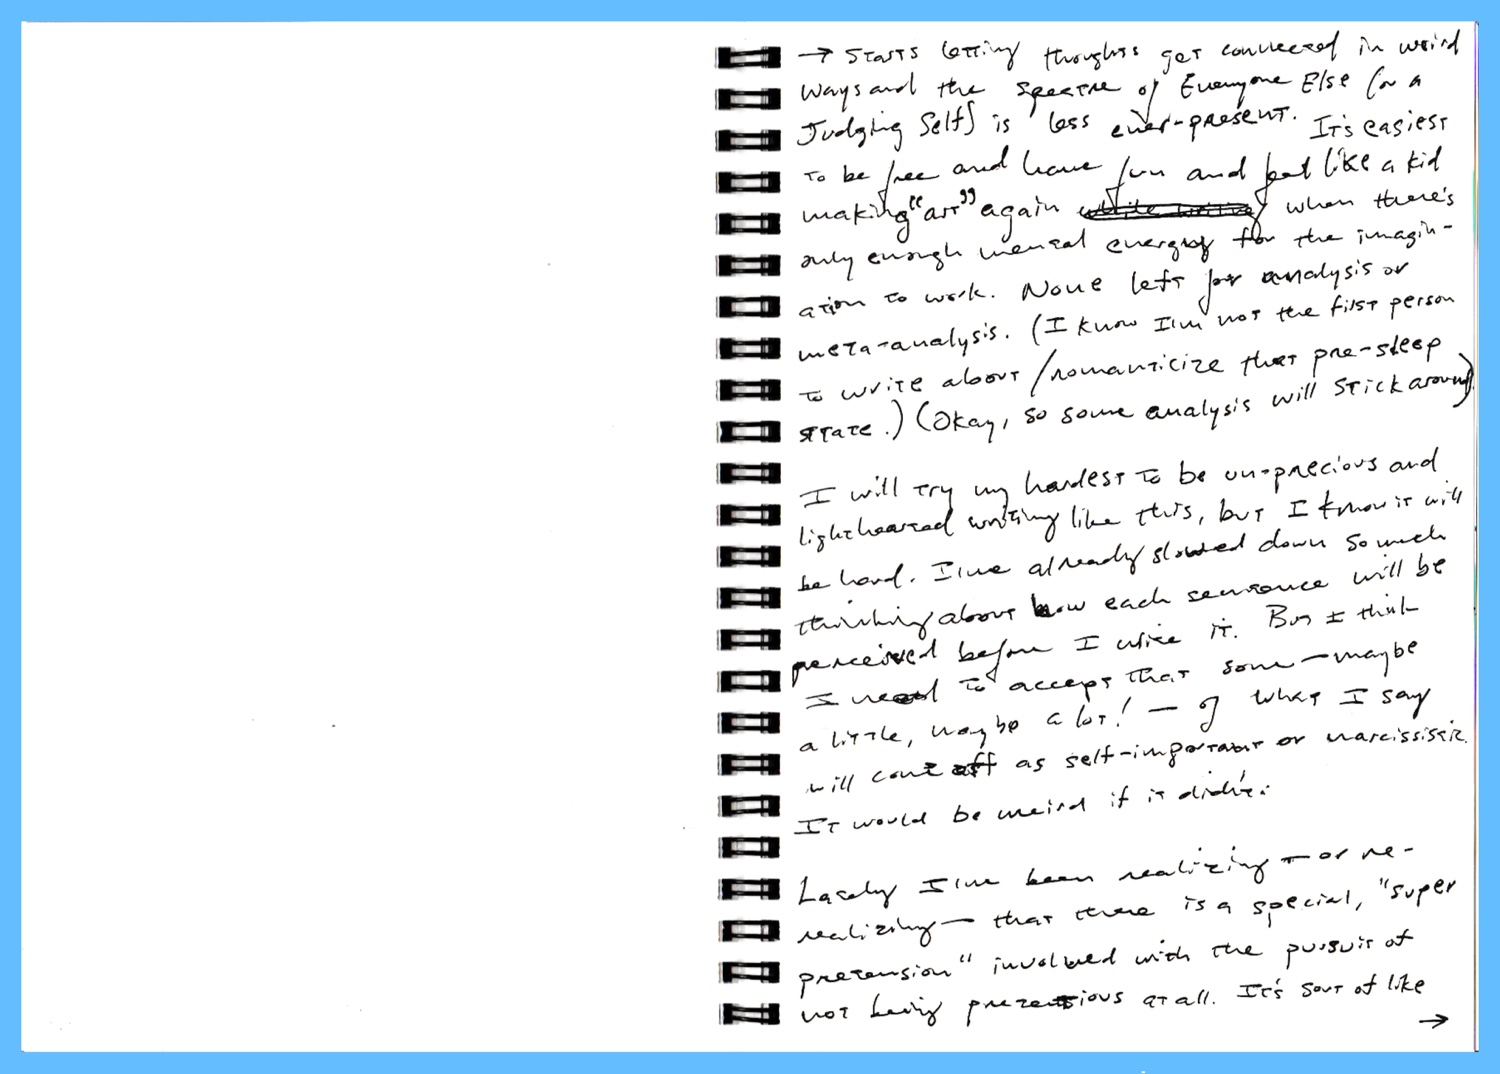 → Starts letting thoughts get connected in weird
ways and the spectre of Everyone Else (or a
Judging Self) is less ever-present. It's easiest
to be free and have fun and feel like a kid
making "art" again when there's
only enough mental energy for the imagin-
ation to work. None left for analysis or
meta-analysis. (I know I'm not the first person
to write about/romanticize that pre-sleep
state.) (Okay, so some analysis will stick around)
I will try my hardest to be un-precious and
lighthearted writing like this, but I know it will
be hard. I've already slowed down so much
thinking about how each sentence will be
perceived before I write it. But I think
I need to accept that some—maybe
a little, maybe a lot! — of what I say
will come off as self-important or narcissistic.
It would be weird if it didn't.
Lately I've been realizing — or re-
realizing — that there is a special, "super
pretension" involved with the pursuit of
not being pretentious at all. It's sort of like
→